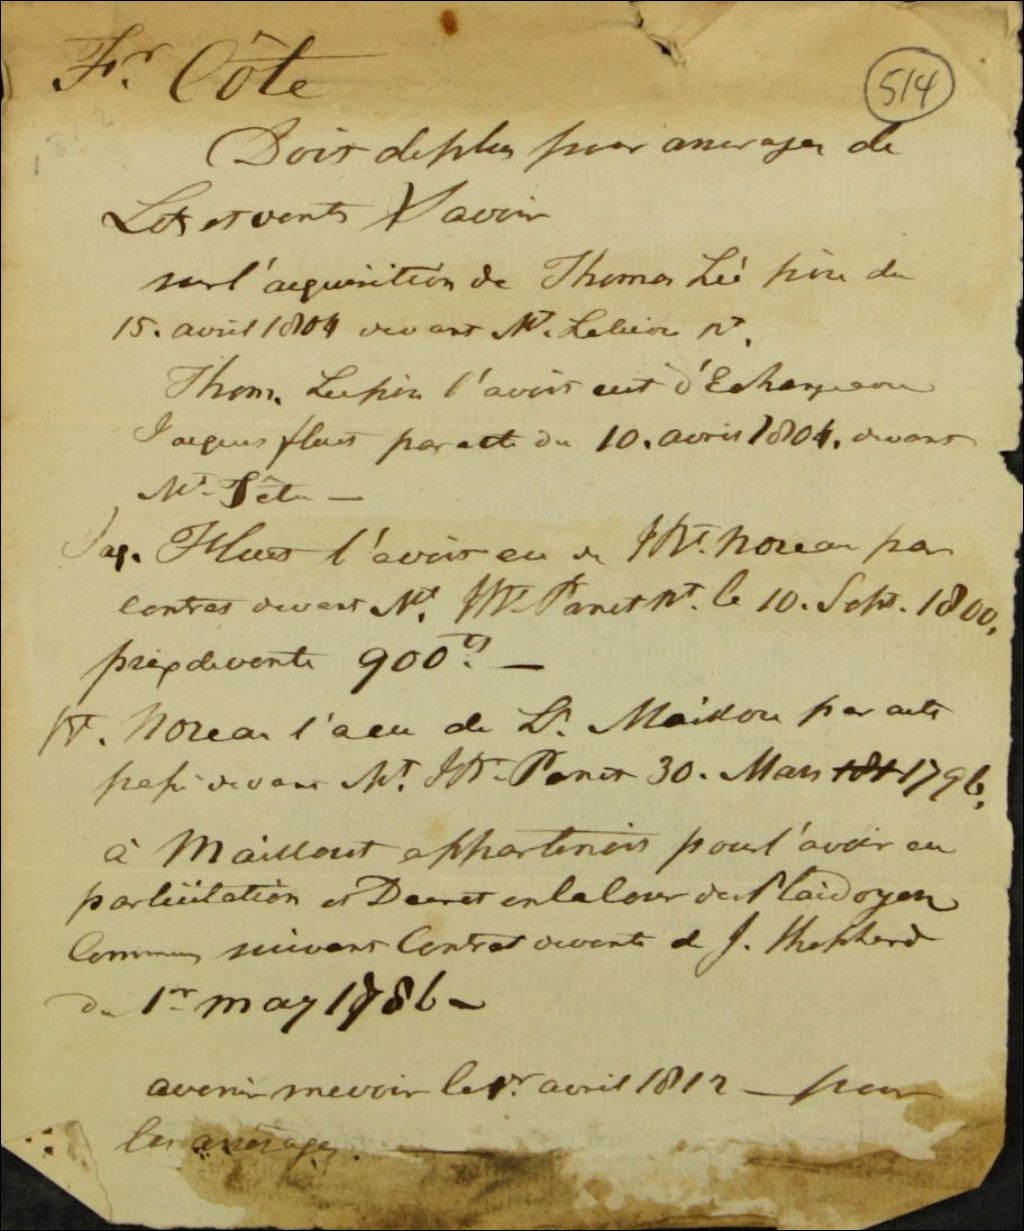 Fr. Côte
514
Doit de plus pour arrerages de
Lots et vents Savoir
sur l'acquisition de Thomas Lée père du
15. avril 1804 devant Mt. Lelievre Nt.
Thom. Lee père l'avoit eut d'Echange avec
Jacques fluet par acte du 10. avril 1804. devant
Mt. Têtu —
Jaq. Fluet l'avoit eu de JBt. Noreau par
contrat devant Mt. JBt. Panet Nt. le 10. Sept. 1800,
prix de vente 900 —
JBt. Noreau l'a eu de Ls. Maillou par acte
passé devant Mt. JBt. Panet 30. Mars 1796,
à Maillout appartenoit pour l'avoir eu
par licitation et Decret en la Cour des Plaidoyers
Communs suivant Contrat de vente de J. Shepherd
du 1er may 1786 —
avenir me voir le 1er. avril 1812 — pour
les arrerages.